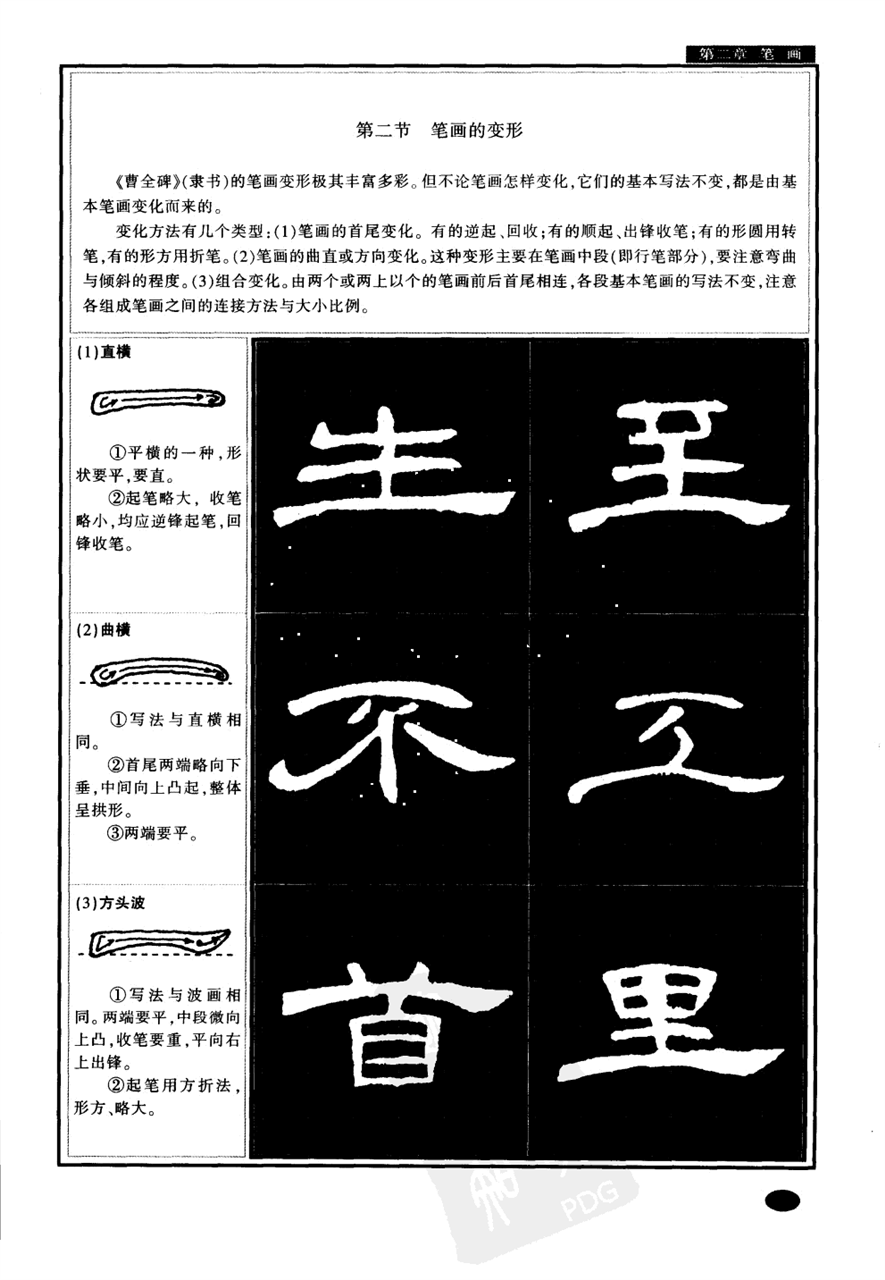 第二章 笔 画
第二节 笔画的变形
《曹全碑》(隶书)的笔画变形极其丰富多彩。但不论笔画怎样变化,它们的基本写法不变,都是由基
本笔画变化而来的。
变化方法有几个类型:(1)笔画的首尾变化。有的逆起、回收;有的顺起、出锋收笔;有的形圆用转
笔,有的形方用折笔。(2)笔画的曲直或方向变化。这种变形主要在笔画中段(即行笔部分),要注意弯曲
与倾斜的程度。(3)组合变化。由两个或两上以个的笔画前后首尾相连,各段基本笔画的写法不变,注意
各组成笔画之间的连接方法与大小比例。
(1)直横
①平横的一种,形
状要平,要直。
②起笔略大, 收笔
略小,均应逆锋起笔,回
锋收笔。
生 至
(2)曲横
①写法与直横相
同。
②首尾两端略向下
垂,中间向上凸起,整体
呈拱形。
③两端要平。
不 工
(3)方头波
①写法与波画相
同。两端要平,中段微向
上凸,收笔要重,平向右
上出锋。
②起笔用方折法,
形方、略大。
首 里
PDG